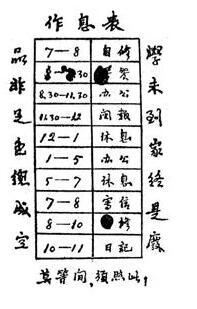 作息表
學未到家終是廢
品非足色總成空
7—8 自修
30 餐
8.30—11.30 办公
11.30—12 閱報
12—1 休息
1—5 办公
5—7 休息
7—8 寫信
8—10 修
10—11 日記
莫等闲，須照此，